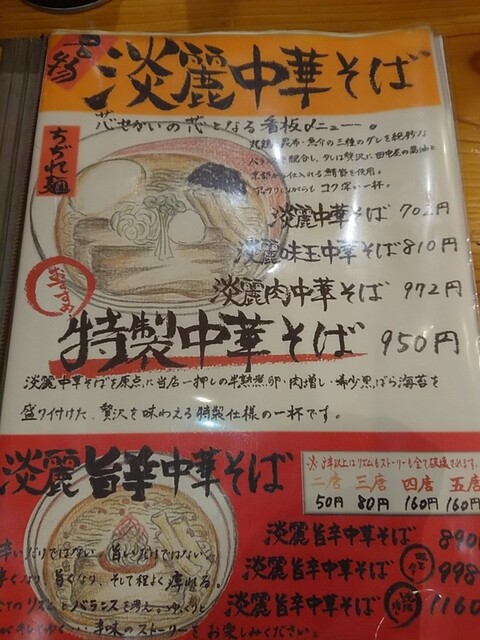 淡麗中華そば
芯せかいの芯となる看板メニュー。
ちぢれ麺
昆布・魚介の三種のダレを絶妙な
コク深い一杯。
淡麗中華そば 702円
淡麗味玉中華そば 810円
淡麗肉中華そば 972円
おすすめ
特製中華そば 950円
淡麗中華そばを原点に当店一押しの半熟煮卵・肉増し・希少黒ばら海苔を
盛り付けた、贅沢を味わえる特製仕様の一杯です。
淡麗旨辛中華そば
※3辛以上はリズムもストーリーも全て破壊されます。
二辛 三辛 四辛 五辛
50円 80円 160円 160円
辛いだけではない 旨いだけではない。
辛くなり、旨くなり、そして程よく痺れる。
てのリズムとバランスを考え、ゆっくりと
辛味のストーリーをお楽しみください。
淡麗旨辛中華そば 890
淡麗旨辛中華そば 998
淡麗旨辛中華そば 1160